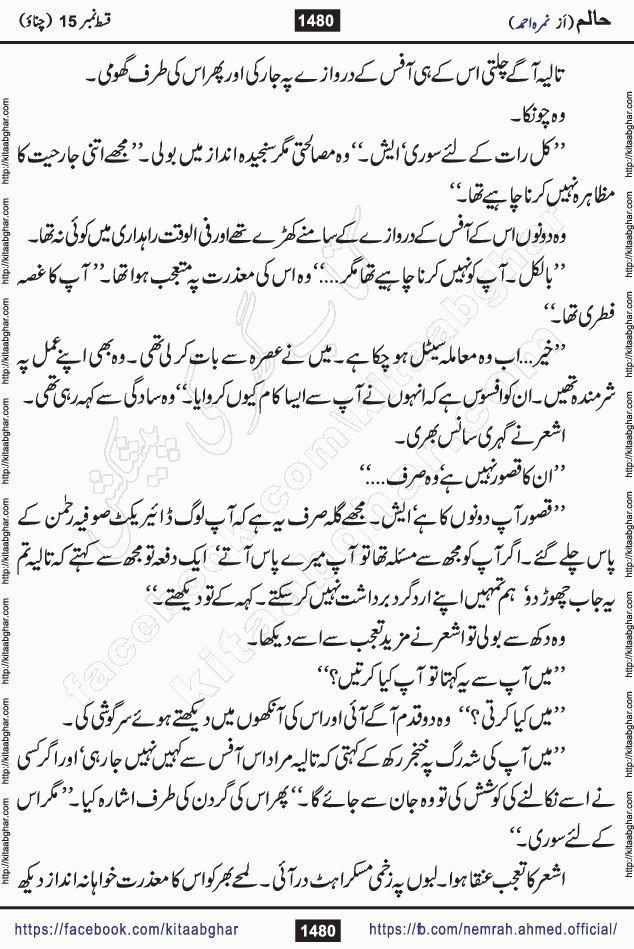 حالم (از نمرہ احمد)
1480
قسط نمبر 15 (چناؤ)
تالیہ آگے چلتی اس کے ہی آفس کے دروازے پہ جا رکی اور پھر اس کی طرف گھومی۔
وہ چونکا۔
’’کل رات کے لئے سوری‘ ایش۔‘‘ وہ مصالحتی مگر سنجیدہ انداز میں بولی۔ ’’مجھے اتنی جارحیت کا
مظاہرہ نہیں کرنا چاہیے تھا۔‘‘
وہ دونوں اس کے آفس کے دروازے کے سامنے کھڑے تھے اور فی الوقت راہداری میں کوئی نہ تھا۔
’’بالکل۔ آپ کو نہیں کرنا چاہیے تھا مگر....‘‘ وہ اس کی معذرت پہ متعجب ہوا تھا۔ ’’آپ کا غصہ
فطری تھا۔‘‘
’’خیر... اب وہ معاملہ سیٹل ہو چکا ہے۔ میں نے عصرہ سے بات کر لی تھی۔ وہ بھی اپنے عمل پہ
شرمندہ تھیں۔ ان کو افسوس ہے کہ انہوں نے آپ سے ایسا کام کیوں کروایا۔‘‘ وہ سادگی سے کہہ رہی تھی۔
اشعر نے گہری سانس بھری۔
’’ان کا قصور نہیں ہے‘ وہ صرف....‘‘
’’قصور آپ دونوں کا ہے‘ ایش۔ مجھے گلہ صرف یہ ہے کہ آپ لوگ ڈائیریکٹ صوفیہ رحمٰن کے
پاس چلے گئے۔ اگر آپ کو مجھ سے مسئلہ تھا تو آپ میرے پاس آتے‘ ایک دفعہ تو مجھ سے کہتے کہ تالیہ تم
یہ جاب چھوڑ دو‘ ہم تمہیں اپنے اردگرد برداشت نہیں کر سکتے۔ کہہ کے تو دیکھتے۔‘‘
وہ دکھ سے بولی تو اشعر نے مزید تعجب سے اسے دیکھا۔
’’میں آپ سے یہ کہتا تو آپ کیا کرتیں؟‘‘
’’میں کیا کرتی؟‘‘ وہ دو قدم آگے آئی اور اس کی آنکھوں میں دیکھتے ہوئے سرگوشی کی۔
’’میں آپ کی شہ رگ پہ خنجر رکھ کے کہتی کہ تالیہ مراد اس آفس سے کہیں نہیں جا رہی‘ اور اگر کسی
نے اسے نکالنے کی کوشش کی تو وہ جان سے جائے گا۔‘‘ پھر اس کی گردن کی طرف اشارہ کیا۔ ’’مگر اس
کے لئے سوری۔‘‘
اشعر کا تعجب عنقا ہوا۔ لبوں پہ زخمی مسکراہٹ در آئی۔ لمحے بھر کو اس کا معذرت خواہانہ انداز دیکھ
https://facebook.com/kitaabghar
1480
https://fb.com/nemrah.ahmed.official/
http://kitaabghar.com http://kitaabghar.com http://kitaabghar.com http://kitaabghar.com http://kitaabghar.com http://kitaabghar.com http://kitaabghar.com http://kitaabghar.com
http://kitaabghar.com http://kitaabghar.com http://kitaabghar.com http://kitaabghar.com http://kitaabghar.com http://kitaabghar.com http://kitaabghar.com http://kitaabghar.com
کتاب گھر کی پیشکش
kitaabghar.com
facebook.com/kitaabghar